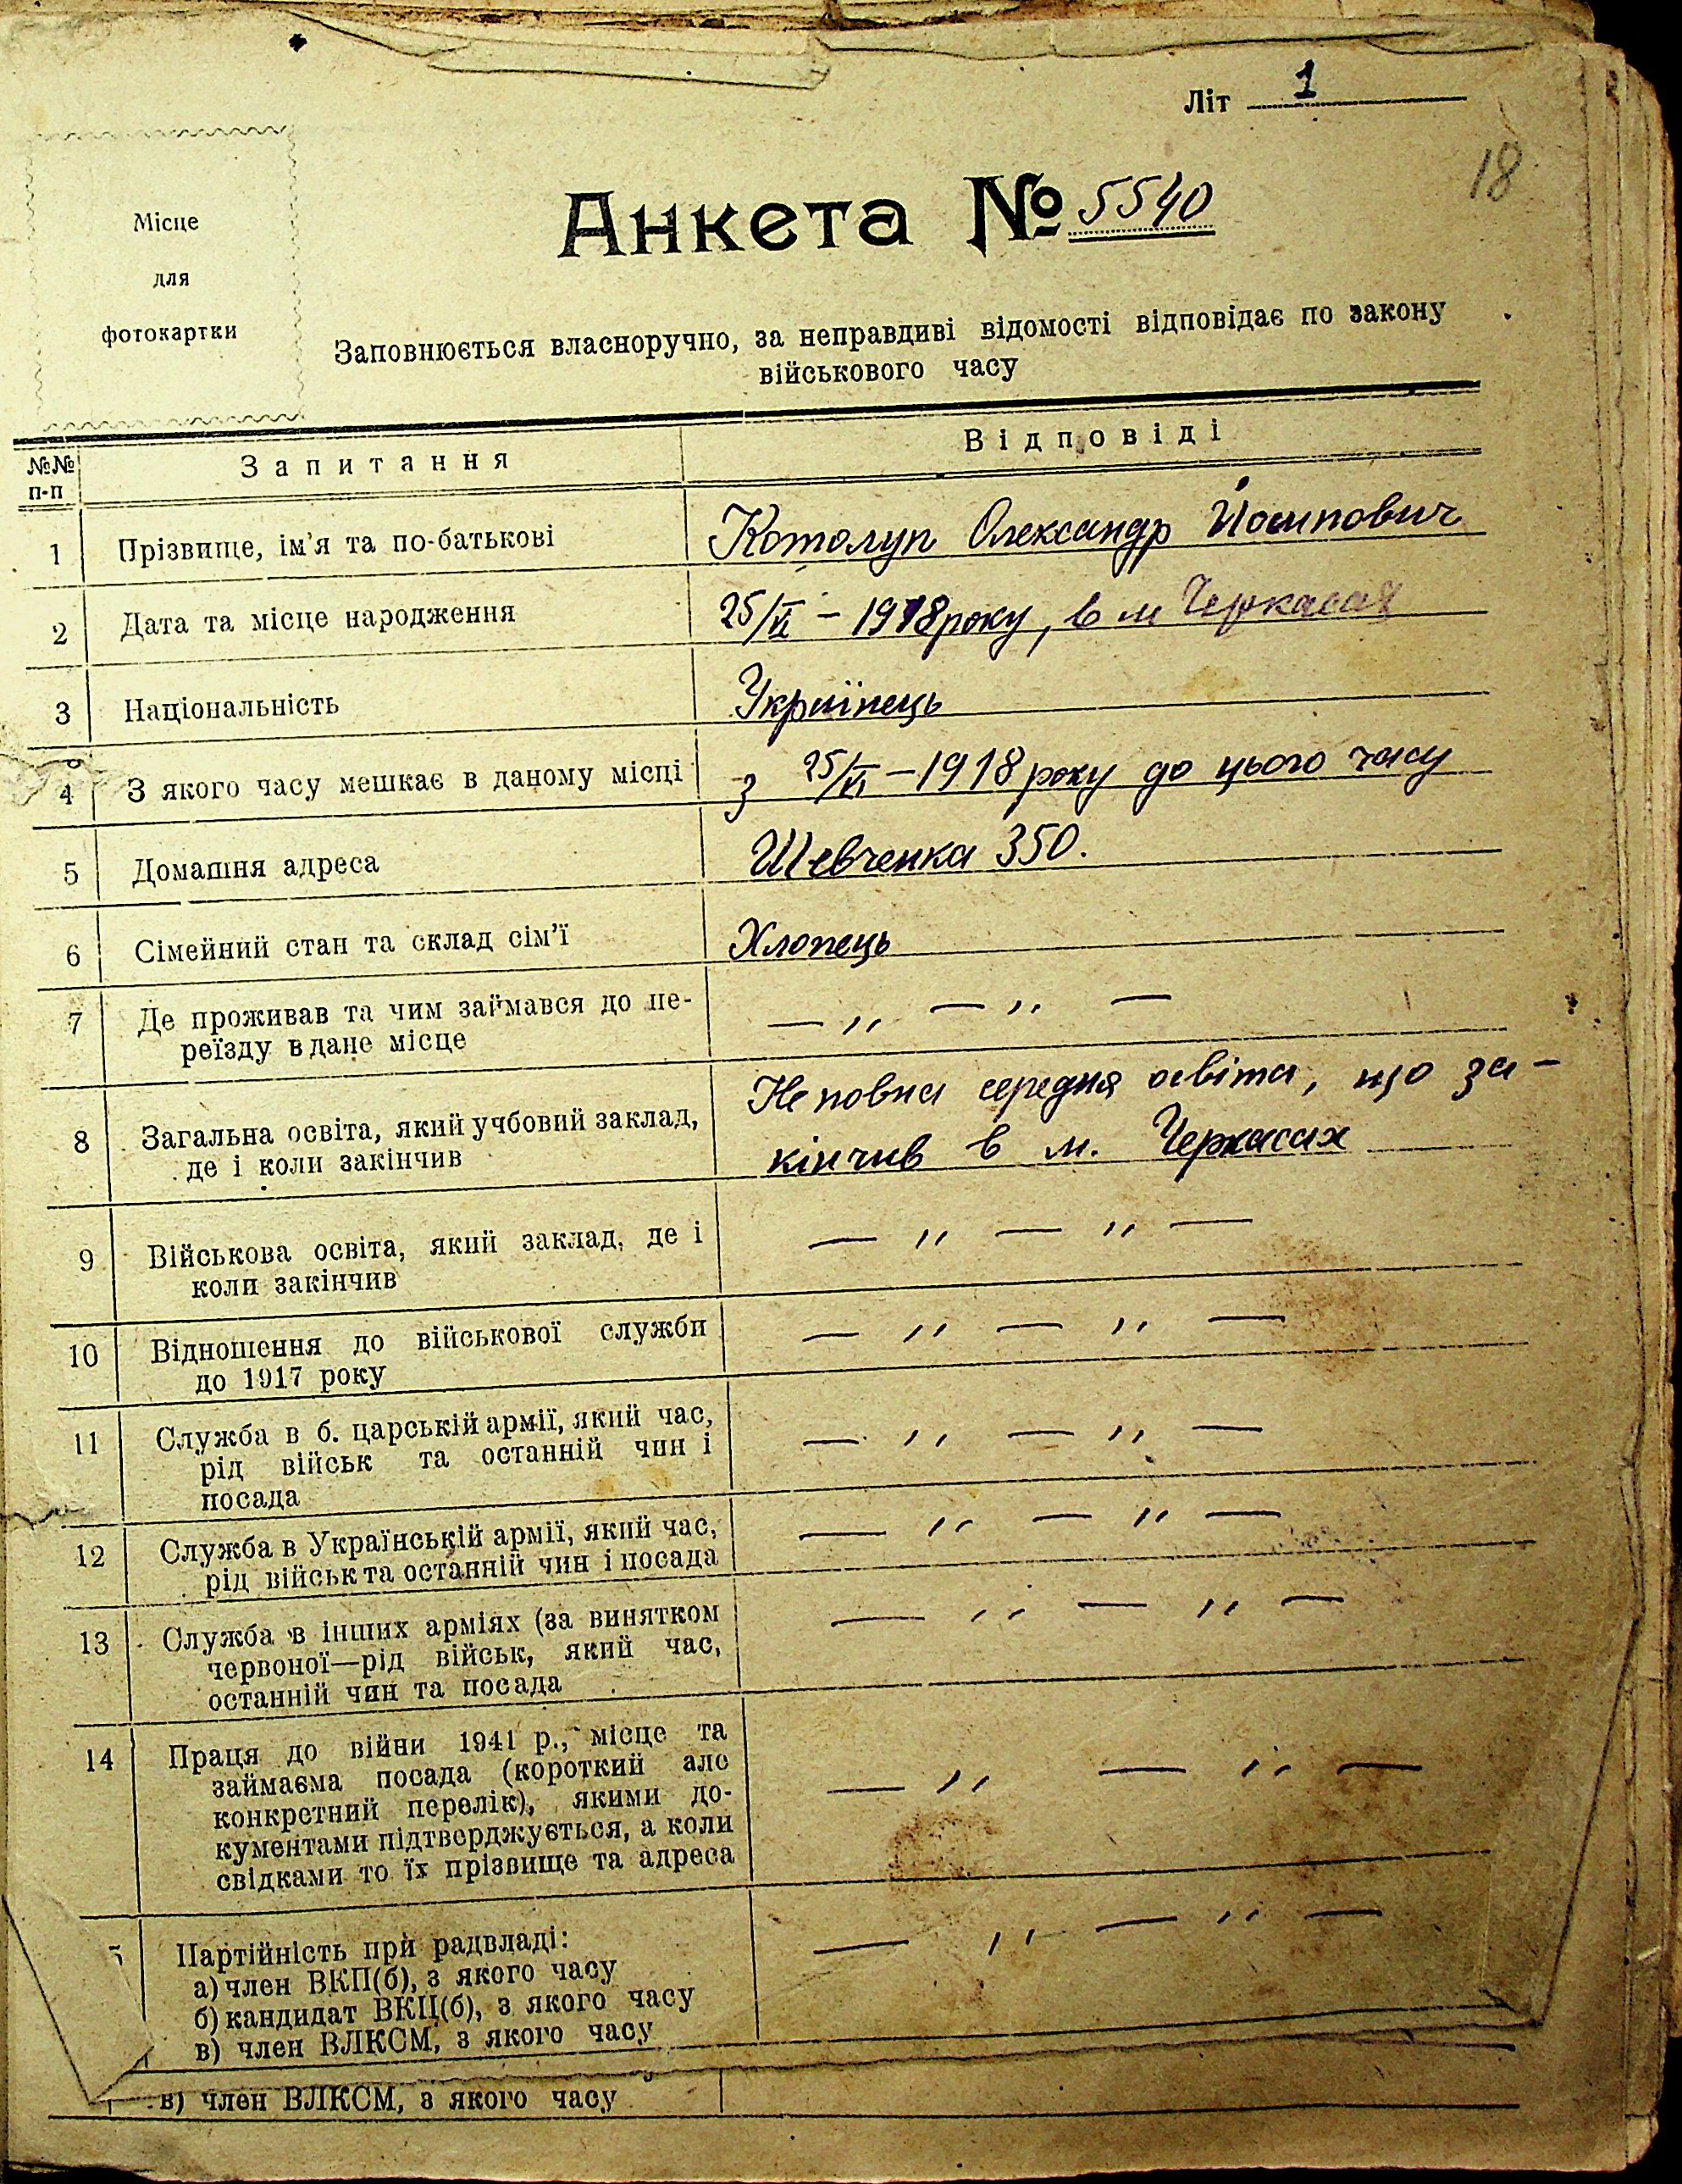 Літ 1
18
Місце
для
фотокартки
Анкета № 5540
Заповнюється власноручно, за неправдиві відомості відповідає по закону
військового часу
№№ п-п Запитання Відповіді
1 Прізвище, ім'я та по-батькові Котолуп Олександр Йосипович
2 Дата та місце народження 25/VI – 1918 року, в м Черкасах
3 Національність Українець
4 З якого часу мешкає в даному місці з 25/VI – 1918 року до цього часу
5 Домашня адреса Шевченка 350.
6 Сімейний стан та склад сім'ї Хлопець
7 Де проживав та чим займався до пе-
реїзду в дане місце — ,, — ,, —
8 Загальна освіта, який учбовий заклад, Неповна середня освіта, що за-
де і коли закінчив кінчив в м. Черкасах
9 Військова освіта, який заклад, де і — ,, — ,, —
коли закінчив
10 Відношення до військової служби — ,, — ,, —
до 1917 року
11 Служба в б. царській армії, який час, — ,, — ,, —
рід військ та останній чин і
посада
12 Служба в Українській армії, який час, — ,, — ,, —
рід військ та останній чин і посада
13 Служба в інших арміях (за винятком — ,, — ,, —
червоної—рід військ, який час,
останній чин та посада
14 Праця до війни 1941 р., місце та
займаєма посада (короткий але — ,, — ,, —
конкретний перелік), якими до-
кументами підтверджується, а коли
свідками то їх прізвище та адреса
5 Партійність при радвладі: — ,, — ,, —
а) член ВКП(б), з якого часу
б) кандидат ВКЦ(б), з якого часу
в) член ВЛКСМ, з якого часу
в) член ВЛКСМ, з якого часу